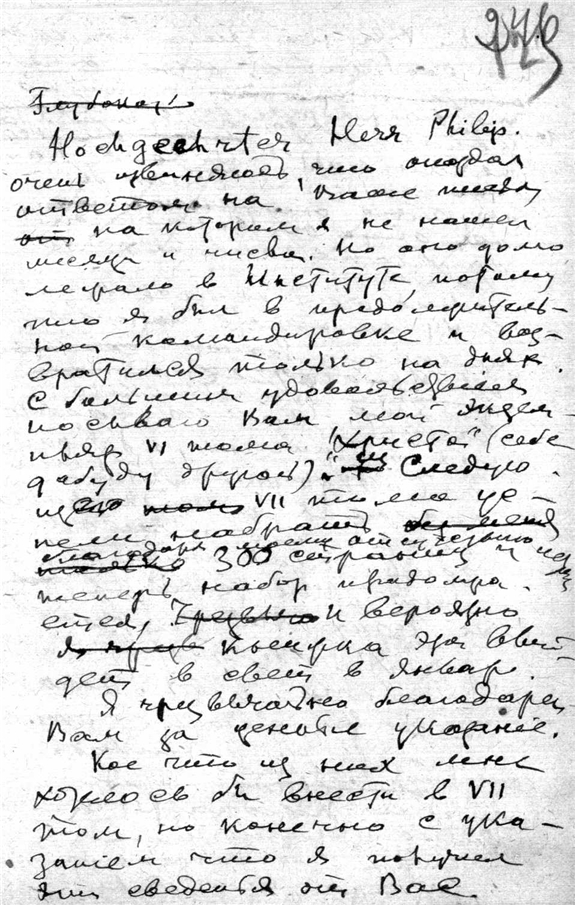 Глубокоу
Hochgeehrter Herr Philip.
очень извиняюсь, что опоздал
ответом на Ваше письмо
от на котором я не нашел
месяца и числа. Но оно долго
лежало в Институте, потому
что я был в продолжитель-
ной командировке и воз-
вратился только на днях.
С большим удовольствием
посылаю Вам мой экзем-
пляр VI тома "Христа" (себе
добуду другой). Следую-
щего VII тома ус-
пели набрать
благодаря моему отсутствию
300 страниц и
теперь набор продолжа-
ется, и вероятно
книжка эта вый-
дет в свет в январе.
Я чрезвычайно благодарен
Вам за ценные указания.
Кое что из них мне
хотелось бы внести в VII
том, но конечно с ука-
занием что я получил
эти сведенья от Вас